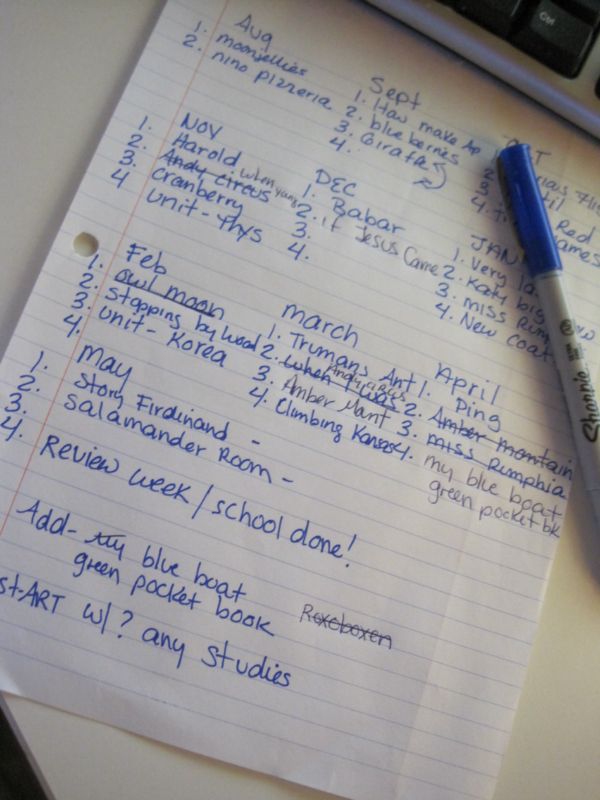 Aug
1. moonjellies
2. nino pizzeria
Sept
1. How make Ap
2. blueberries
3. Giraffe
4.
2
3
4.
Red
ames
1. NOV
2. Harold
3. Andy circus when young
4 Cranberry
Unit - Thys
DEC
1. Babar
2. if Jesus Came
3.
4.
JAN
1. Very la
2. Katy big
3. miss Rum
4. New coat
Feb
1. owl moon
2. Stopping by Wood
3. Unit - Korea
4.
march
1. Trumans Ant
2. when I was Andy circus
3. Amber Mant
4. Climbing Kansas
April
1. Ping
2. Amber mountain
3. miss Rumphia
4. my blue boat
green pocket bk
1. May
2. Story Ferdinand -
3. Salamander Room -
4. Review week / school done!
Add- my blue boat
green pocket book
Roxeboxen
st-ART w/? any studies
Ctrl
Sharpie